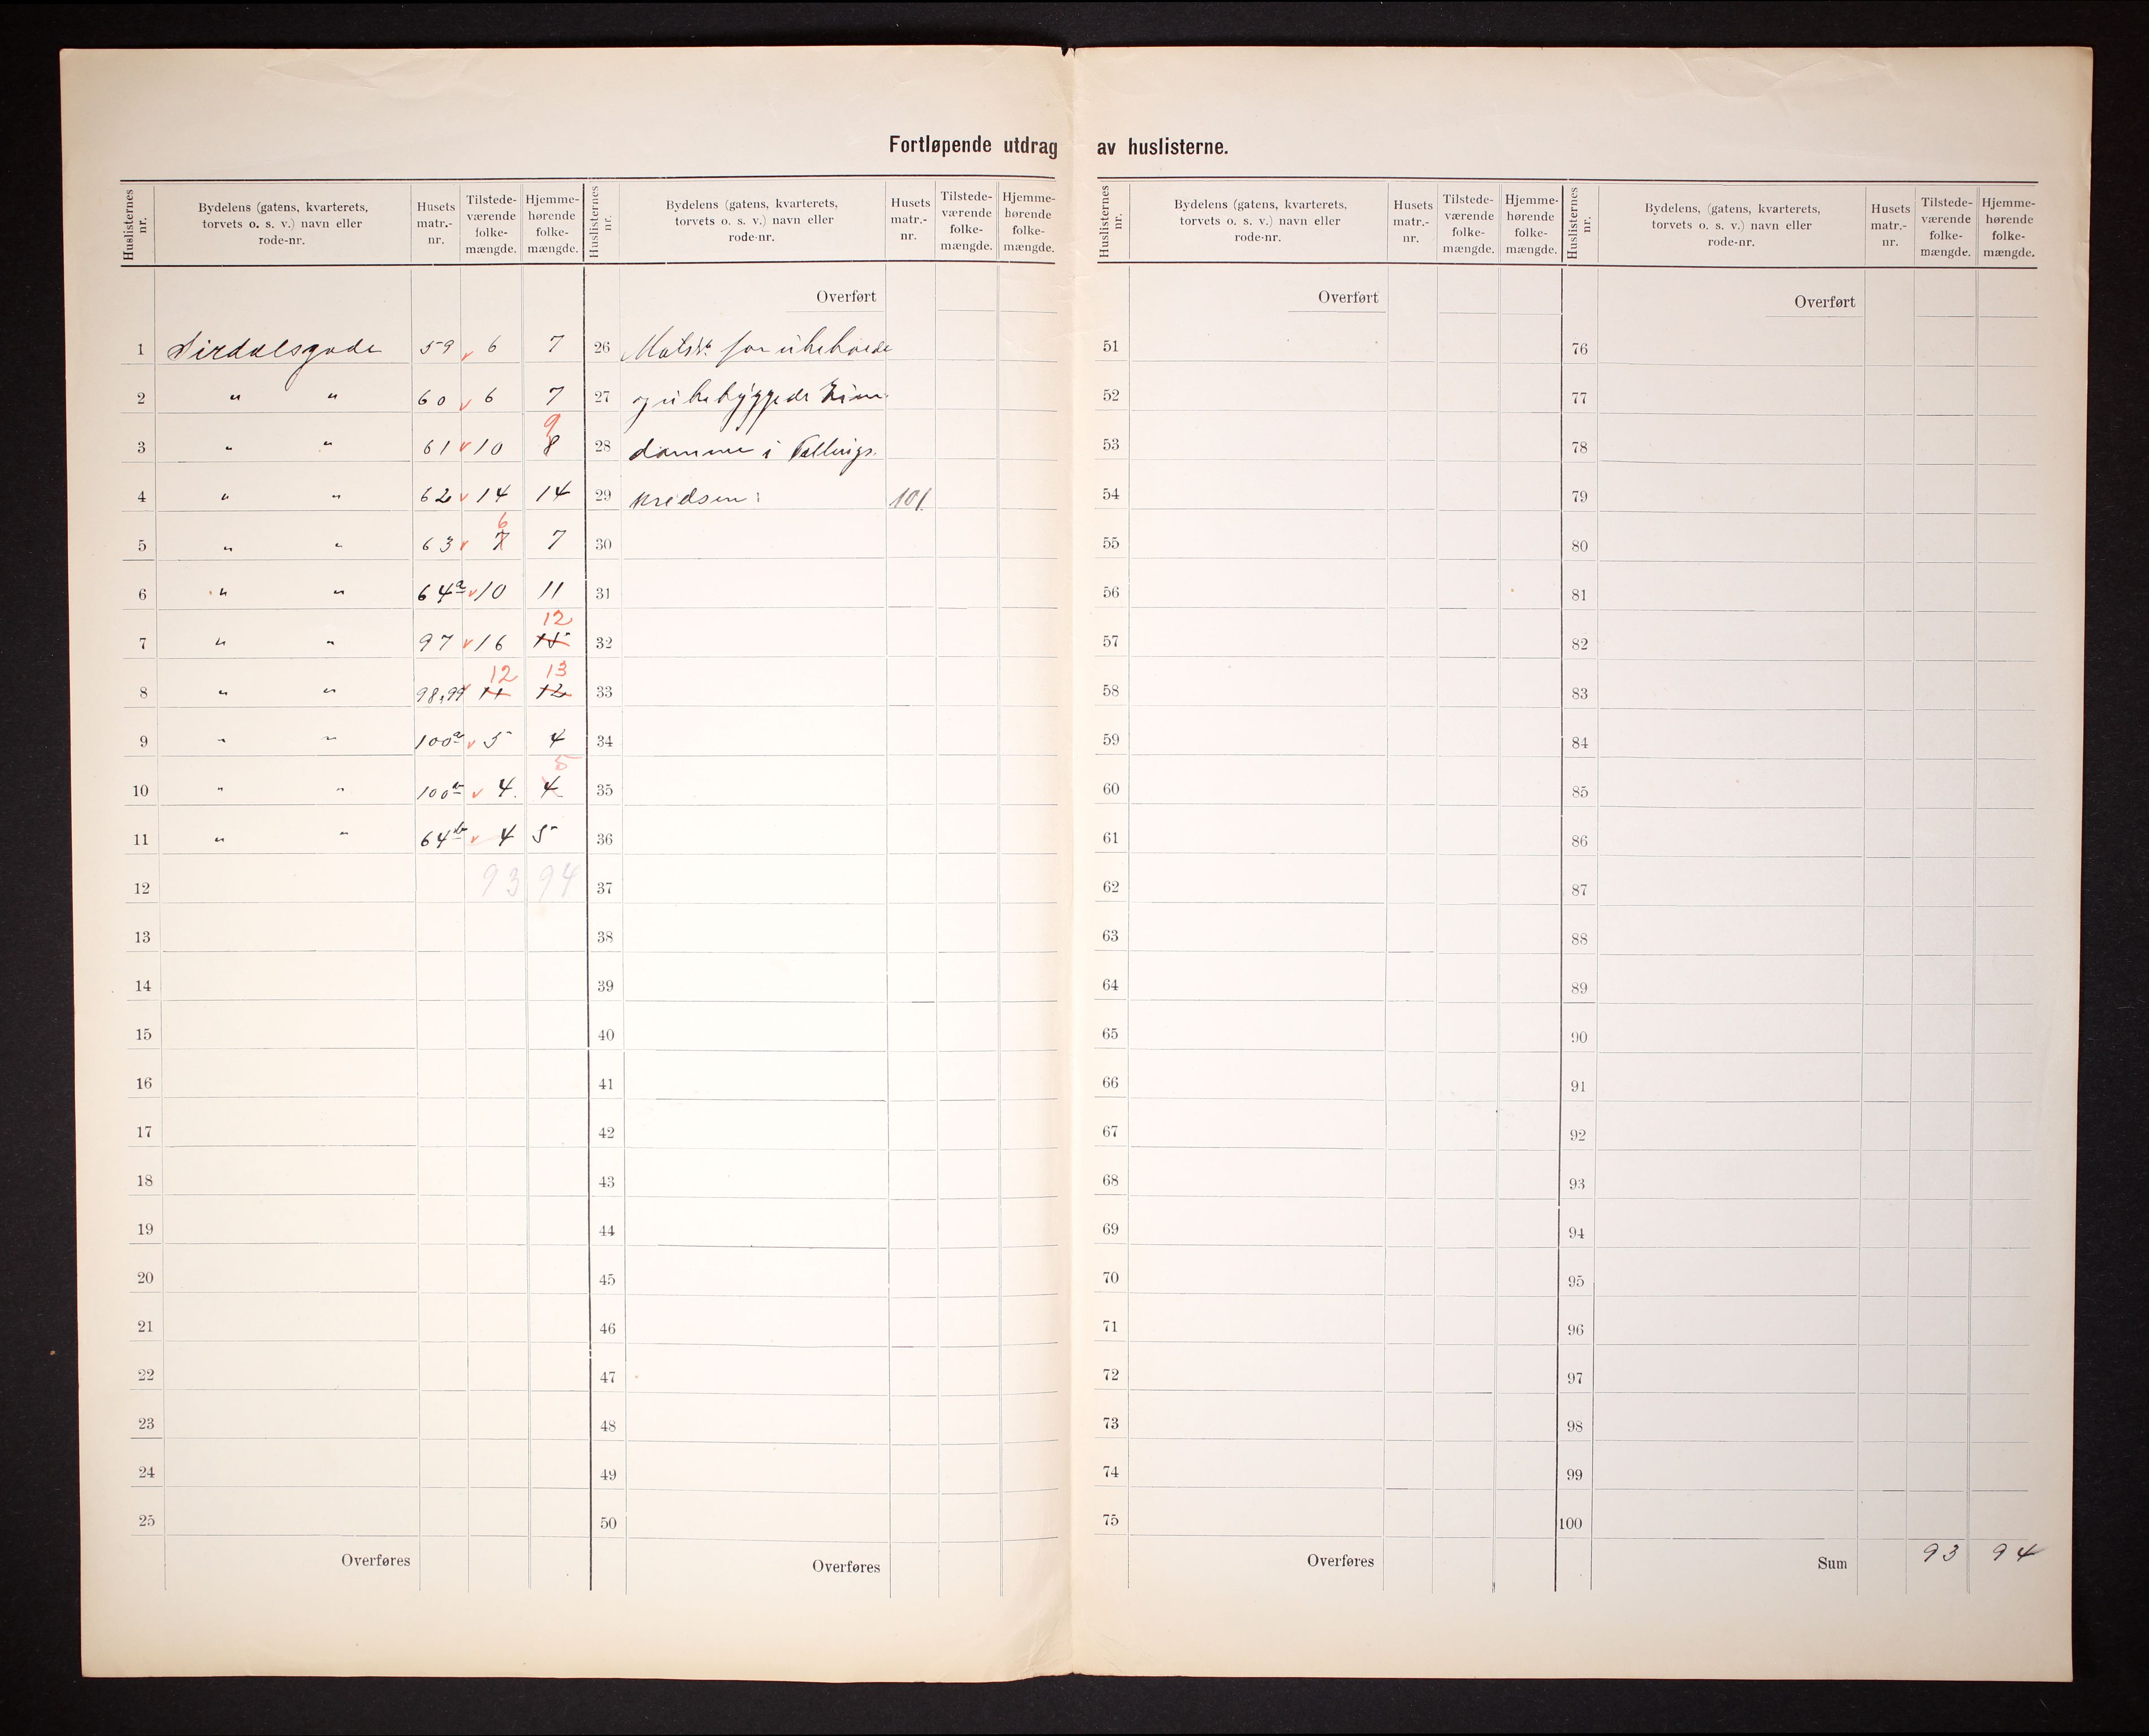 Fortløpende utdrag av huslisterne.
Huslisternes nr.
Bydelens (gatens, kvarterets, torvets o. s. v.) navn eller rode-nr.
Husets matr.-nr.
Tilstede-værende folke-mængde.
Hjemme-hørende folke-mængde.
1 Sirdalsgade 59 v 6 7
2 " " 60 v 6 7
3 " " 61 v 10 8 9
4 " " 62 v 14 14
5 " " 63 v 7 6 7
6 " " 64a v 10 11
7 " " 97 v 16 15 12
8 " " 98,99 v 11 12 12 13
9 " " 100a v 5 4
10 " " 100b v 4. 4 5
11 " " 64b v 4 5
12 93 94
13
14
15
16
17
18
19
20
21
22
23
24
25
Overføres
Huslisternes nr.
Bydelens (gatens, kvarterets, torvets o. s. v.) navn eller rode-nr.
Husets matr.-nr.
Tilstede-værende folke-mængde.
Hjemme-hørende folke-mængde.
Overført
26 for ubeboede
27 og ubebyggede
28 domme i Tællings.
29 kredsen: 101
30
31
32
33
34
35
36
37
38
39
40
41
42
43
44
45
46
47
48
49
50
Overføres
Huslisternes nr.
Bydelens (gatens, kvarterets, torvets o. s. v.) navn eller rode-nr.
Husets matr.-nr.
Tilstede-værende folke-mængde.
Hjemme-hørende folke-mængde.
Overført
51
52
53
54
55
56
57
58
59
60
61
62
63
64
65
66
67
68
69
70
71
72
73
74
75
Overføres
Huslisternes nr.
Bydelens, (gatens, kvarterets, torvets o. s. v.) navn eller rode-nr.
Husets matr.-nr.
Tilstede-værende folke-mængde.
Hjemme-hørende folke-mængde.
Overført
76
77
78
79
80
81
82
83
84
85
86
87
88
89
90
91
92
93
94
95
96
97
98
99
100
Sum 93 94